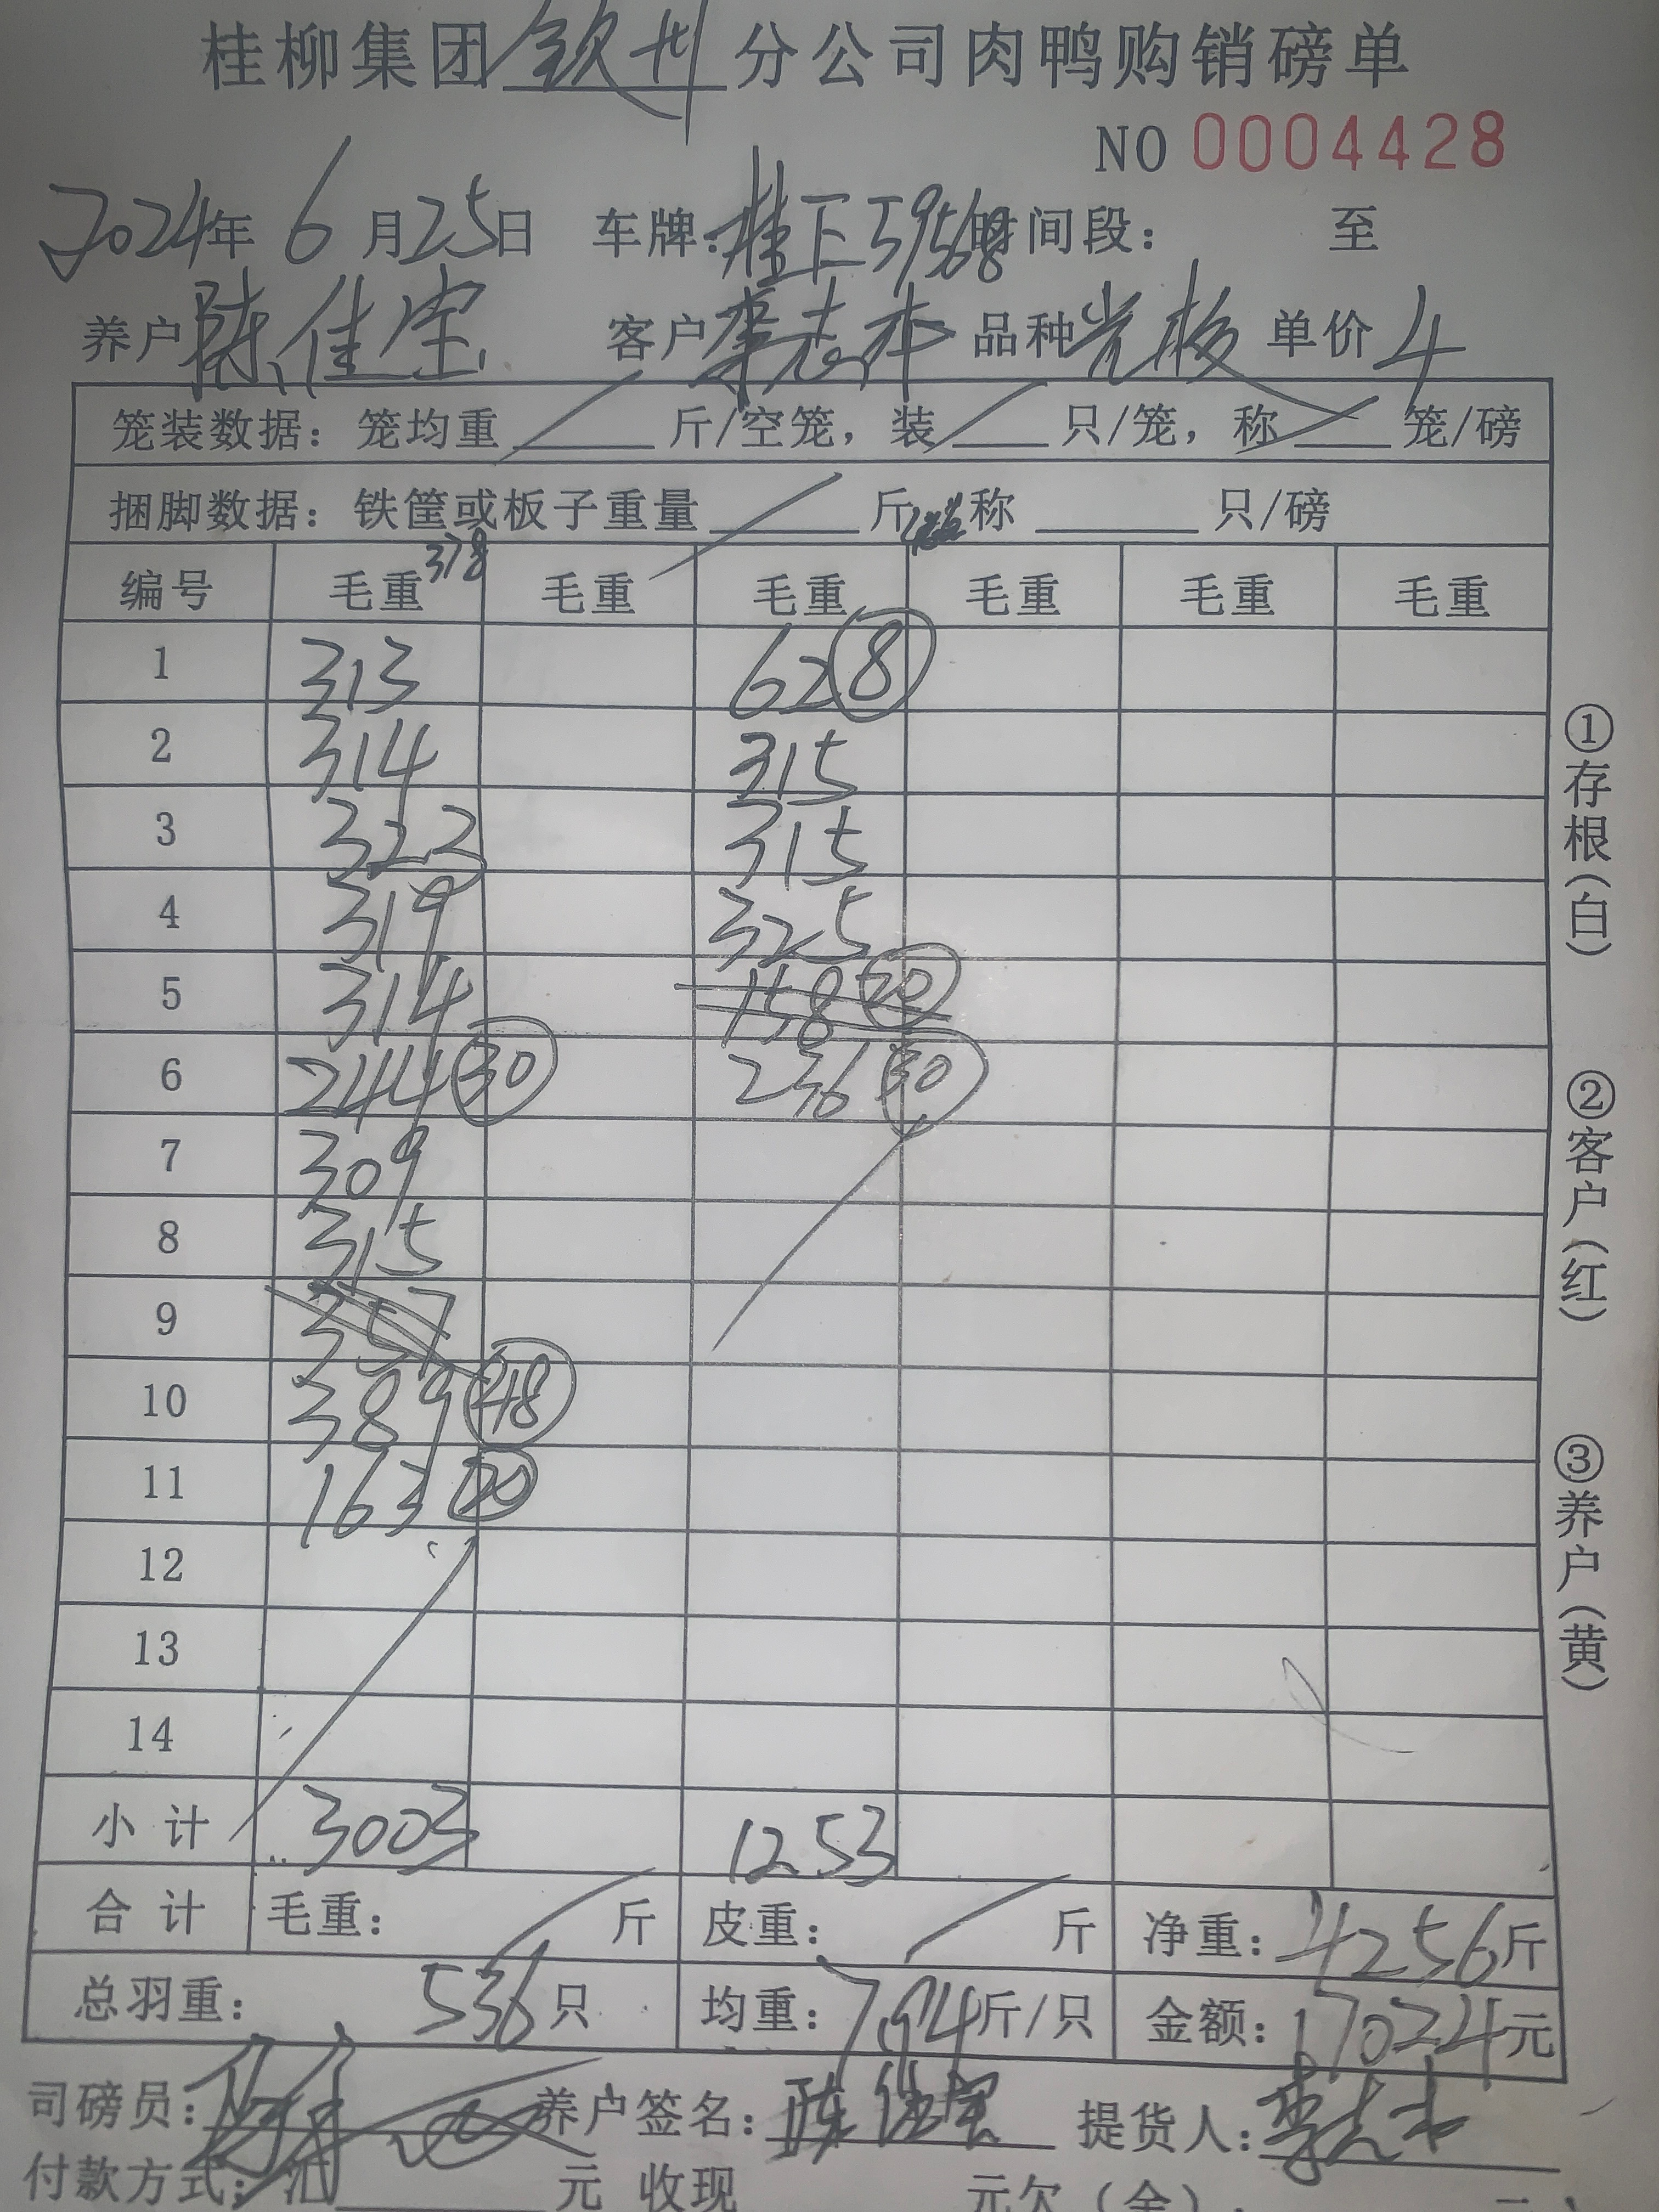 桂柳集团钦州分公司肉鸭购销磅单
NO 0004428
2024年 6月25日 车牌: 时间段: 至
养户陈佳宝 客户李志 品种 单价4
笼装数据: 笼均重 斤/空笼, 装 只/笼, 称 笼/磅
捆脚数据: 铁筐或板子重量 斤 称 只/磅
378
编号 毛重 毛重 毛重 毛重 毛重 毛重
1 313 62 8
2 314 315
3 322 315
4 319 325
5 314 158 20
6 244 30 236 30
7 309
8 315
9 357
10 389 48
11 163 20
12
13
14
小计 3003 1253
合计 毛重: 斤 皮重: 斤 净重: 4256斤
总羽重: 536只 均重: 7.94斤/只 金额: 17024元
司磅员: 养户签名: 陈佳宝 提货人: 李志
付款方式: 汇 元 收现 元欠(余)
①存根(白)
②客户(红)
③养户(黄)